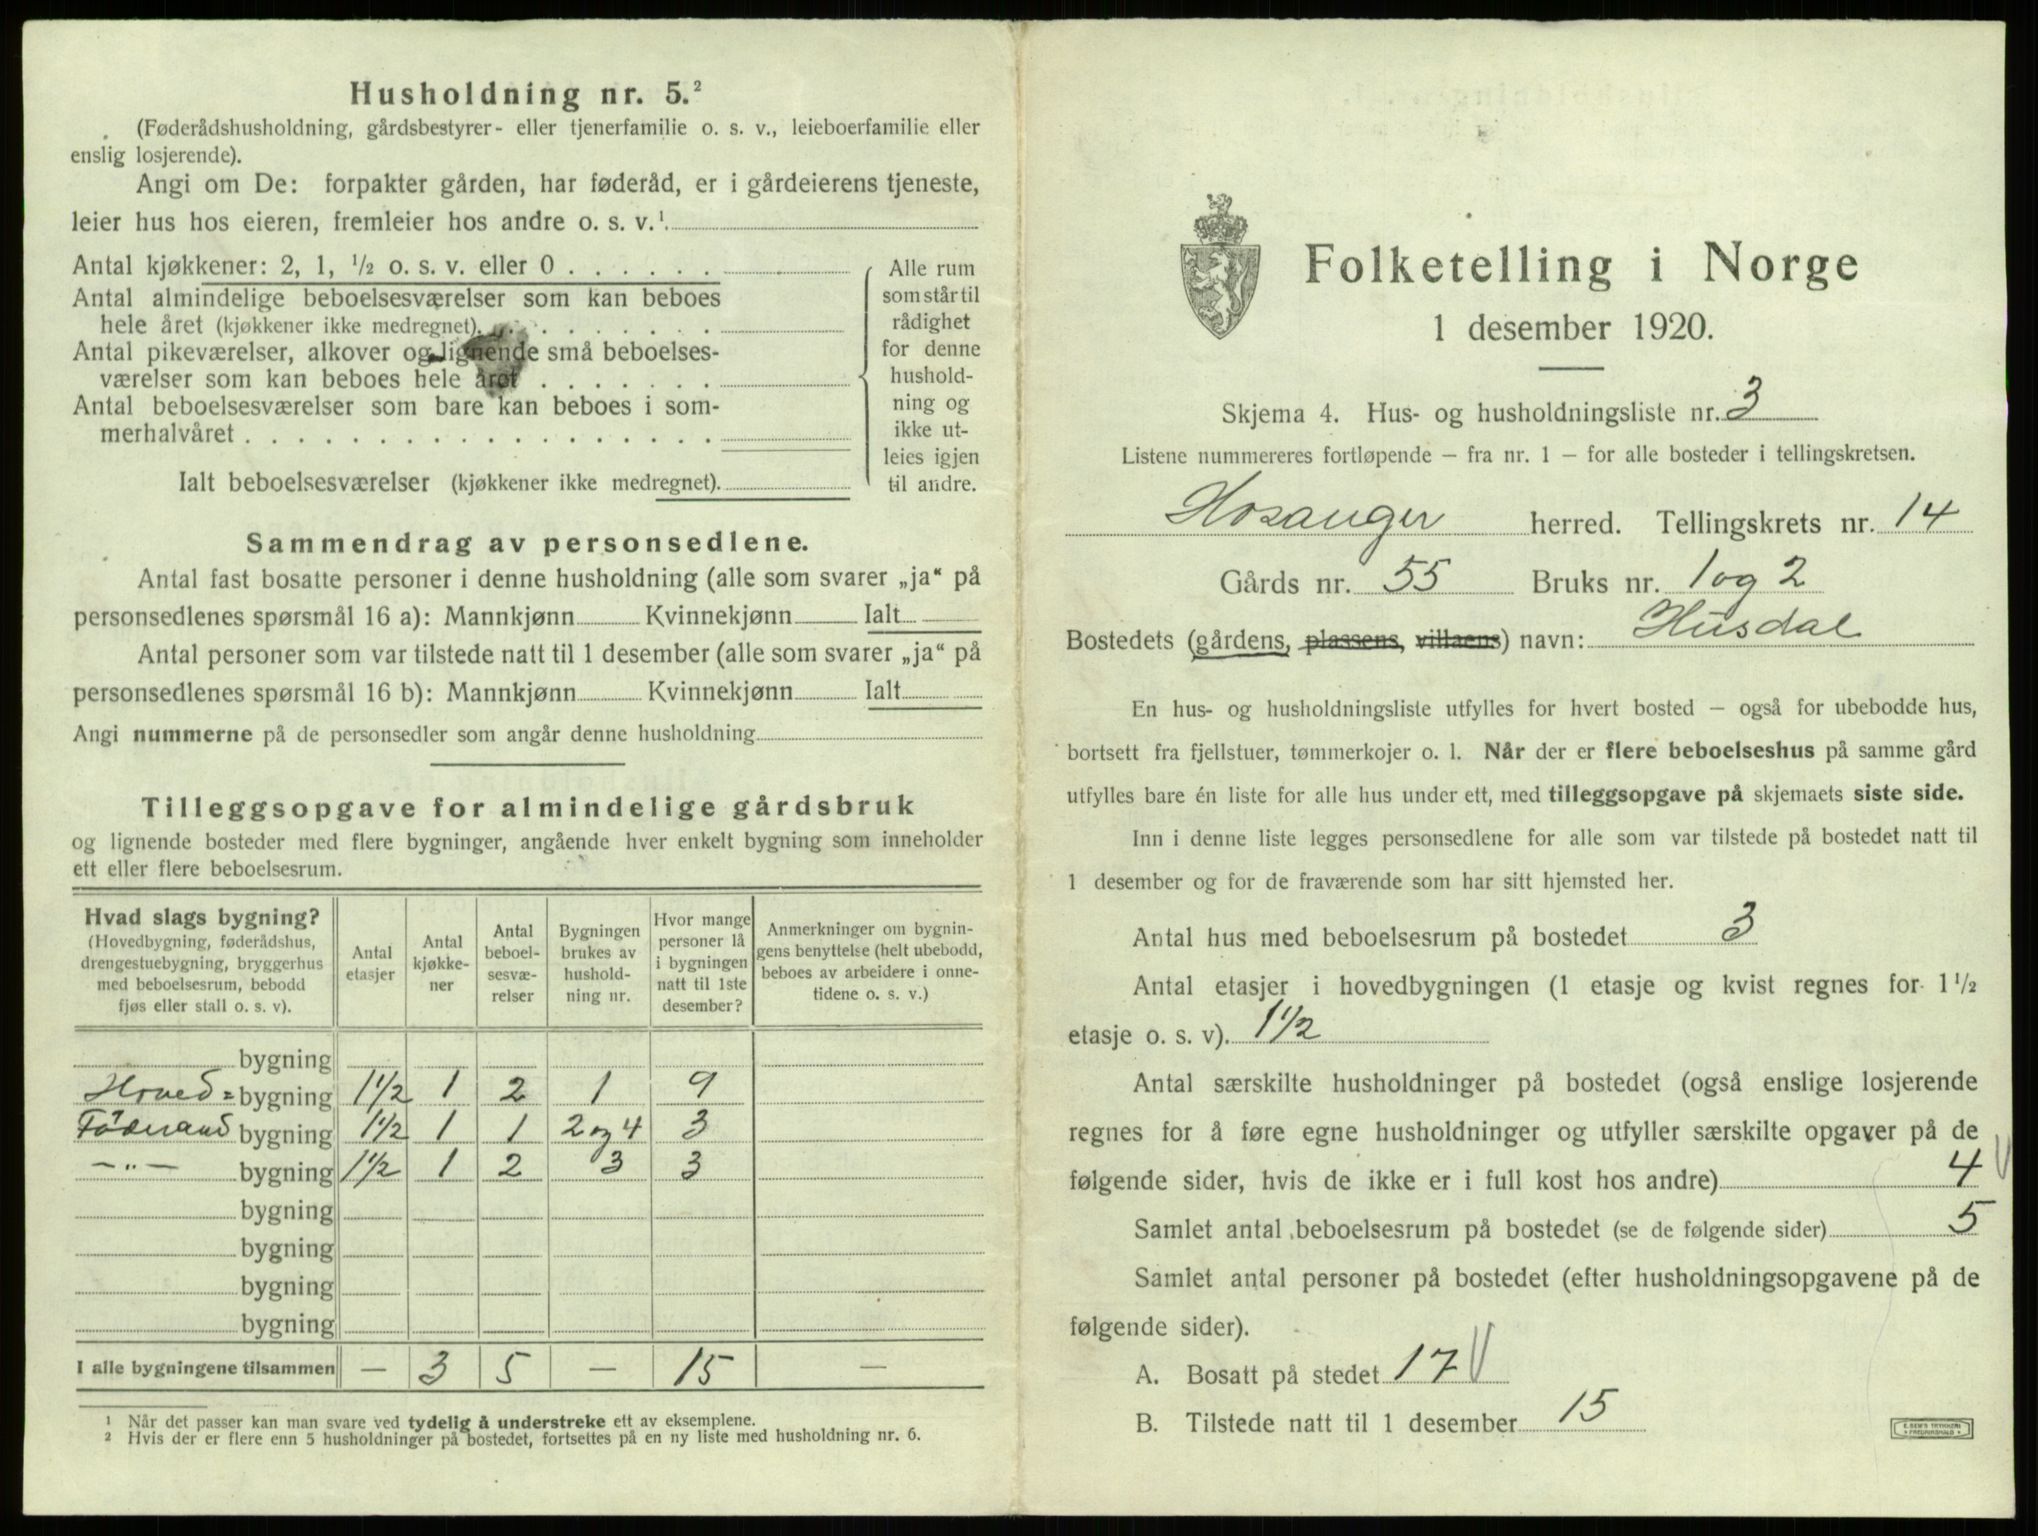 Husholdning nr. 5.²
(Føderådshusholdning, gårdsbestyrer- eller tjenerfamilie o. s. v., leieboerfamilie eller
enslig losjerende).
Angi om De: forpakter gården, har føderåd, er i gårdeierens tjeneste,
leier hus hos eieren, fremleier hos andre o. s. v.¹
Antal kjøkkener: 2, 1, ½ o. s. v. eller 0
Antal almindelige beboelsesværelser som kan beboes
hele året (kjøkkener ikke medregnet).
Antal pikeværelser, alkover og lignende små beboelses-
værelser som kan beboes hele året
Antal beboelsesværelser som bare kan beboes i som-
merhalvåret
Ialt beboelsesværelser (kjøkkener ikke medregnet).
Alle rum
som står til
rådighet
for denne
hushold-
ning og
ikke ut-
leies igjen
til andre.
Sammendrag av personsedlene.
Antal fast bosatte personer i denne husholdning (alle som svarer „ja“ på
personsedlenes spørsmål 16 a): Mannkjønn Kvinnekjønn Ialt
Antal personer som var tilstede natt til 1 desember (alle som svarer „ja“ på
personsedlenes spørsmål 16 b): Mannkjønn Kvinnekjønn Ialt
Angi nummerne på de personsedler som angår denne husholdning
Tilleggsopgave for almindelige gårdsbruk
og lignende bosteder med flere bygninger, angående hver enkelt bygning som inneholder
ett eller flere beboelsesrum.
Hvad slags bygning?
(Hovedbygning, føderådshus,
drengestuebygning, bryggerhus
med beboelsesrum, bebodd
fjøs eller stall o. s. v).
Antal
etasjer
Antal
kjøkke-
ner
Antal
beboel-
sesvæ-
relser
Bygningen
brukes av
hushold-
ning nr.
Hvor mange
personer lå
i bygningen
natt til 1ste
desember?
Anmerkninger om bygnin-
gens benyttelse (helt ubebodd,
beboes av arbeidere i onne-
tidene o. s. v.)
bygning
Hoved= bygning 1½ 1 2 1 9
Föderaad bygning 1½ 1 1 2 og 4 3
— „ — bygning 1½ 1 2 3 3
bygning
bygning
bygning
bygning
I alle bygningene tilsammen — 3 5 — 15 —
¹ Når det passer kan man svare ved tydelig å understreke ett av eksemplene.
² Hvis der er flere enn 5 husholdninger på bostedet, fortsettes på en ny liste med husholdning nr. 6.
Folketelling i Norge
1 desember 1920.
Skjema 4. Hus- og husholdningsliste nr. 3
Listene nummereres fortløpende – fra nr. 1 – for alle bosteder i tellingskretsen.
Hosanger herred. Tellingskrets nr. 14
Gårds nr. 55 Bruks nr. 1 og 2
Bostedets (gårdens, plassens, villaens) navn: Husdal
En hus- og husholdningsliste utfylles for hvert bosted – også for ubebodde hus,
bortsett fra fjellstuer, tømmerkojer o. l. Når der er flere beboelseshus på samme gård
utfylles bare én liste for alle hus under ett, med tilleggsopgave på skjemaets siste side.
Inn i denne liste legges personsedlene for alle som var tilstede på bostedet natt til
1 desember og for de fraværende som har sitt hjemsted her.
Antal hus med beboelsesrum på bostedet 3
Antal etasjer i hovedbygningen (1 etasje og kvist regnes for 1½
etasje o. s. v). 1½
Antal særskilte husholdninger på bostedet (også enslige losjerende
regnes for å føre egne husholdninger og utfyller særskilte opgaver på de
følgende sider, hvis de ikke er i full kost hos andre) 4
Samlet antal beboelsesrum på bostedet (se de følgende sider) 5
Samlet antal personer på bostedet (efter husholdningsopgavene på de
følgende sider).
A. Bosatt på stedet 17
B. Tilstede natt til 1 desember 15
E. SEM'S TRYKKERI
FREDRIKSHALD